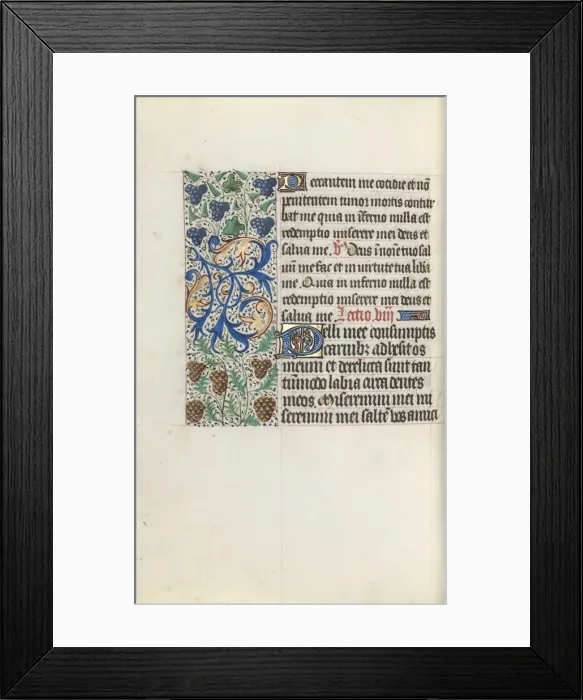 Peccantem me cotidie et nō
penitentem timor mortis contur
bat me quia in īferno nulla est
redemptio miserere mei deus et
salua me. V̄ Deus ī noīe tuo sal
uū me fac et in uirtute tua liba
me. Quia in inferno nulla est
redemptio miserere mei deus et
salua me. Lectio. viij
Pelli mee consumptis
carnibȝ adhesit os
meum et derelicta sunt tan
tūmodo labia circa dentes
meos. Miseremini mei mi
seremini mei saltē vos amici